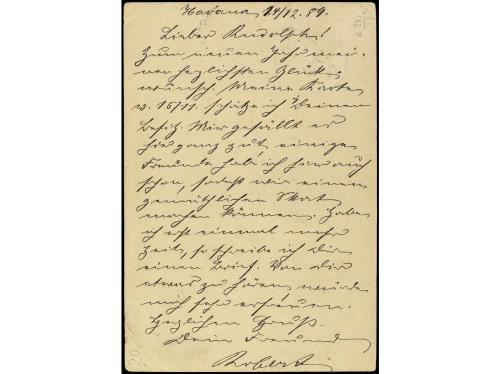 Havana, 14/12. 89.
Lieber Rudolph!
Zum neuen Jahr mei-
nen herzlichsten Glück-
wunsch. Meine Karte
v. 15/11. schätze ich Deinen
Besitz. Mir gefällt es
hier ganz gut, einige
Freunde habe ich hier auch
schon, sodaß wir einen
gemüthlichen Skat
machen können. Habe
ich erst einmal mehr
Zeit, so schreibe ich dir
einen Brief. Von dir
etwas zu hören, würde
mich sehr erfreuen.
Herzlichen Gruß.
Dein Freund
Robert